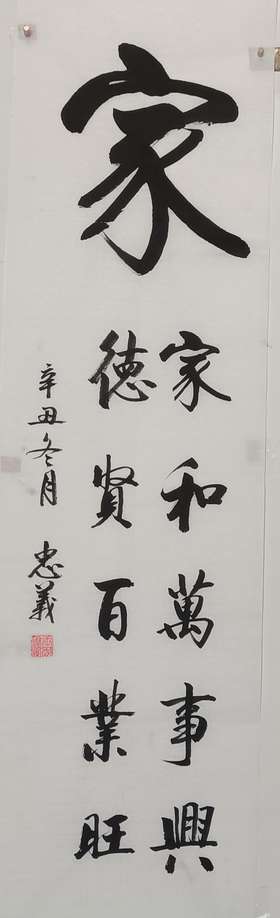 家
家和萬事興
德賢百業旺
辛丑冬月 忠義